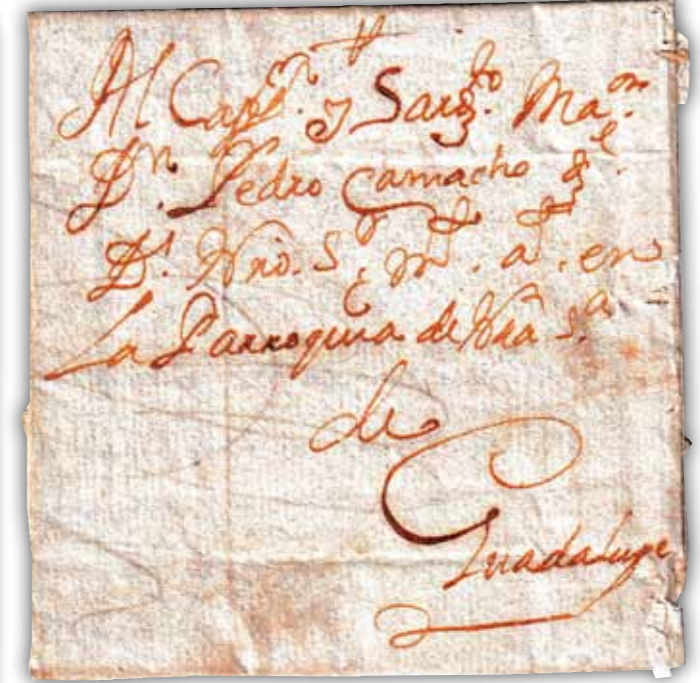 +
Al Capn. y Sargto. Maor.
Dn. Pedro Camacho qe.
Ds. Nrõ. Sr. gde. ms. as. en
La Parroquia de Nrã Sa.
de
Guadalupe